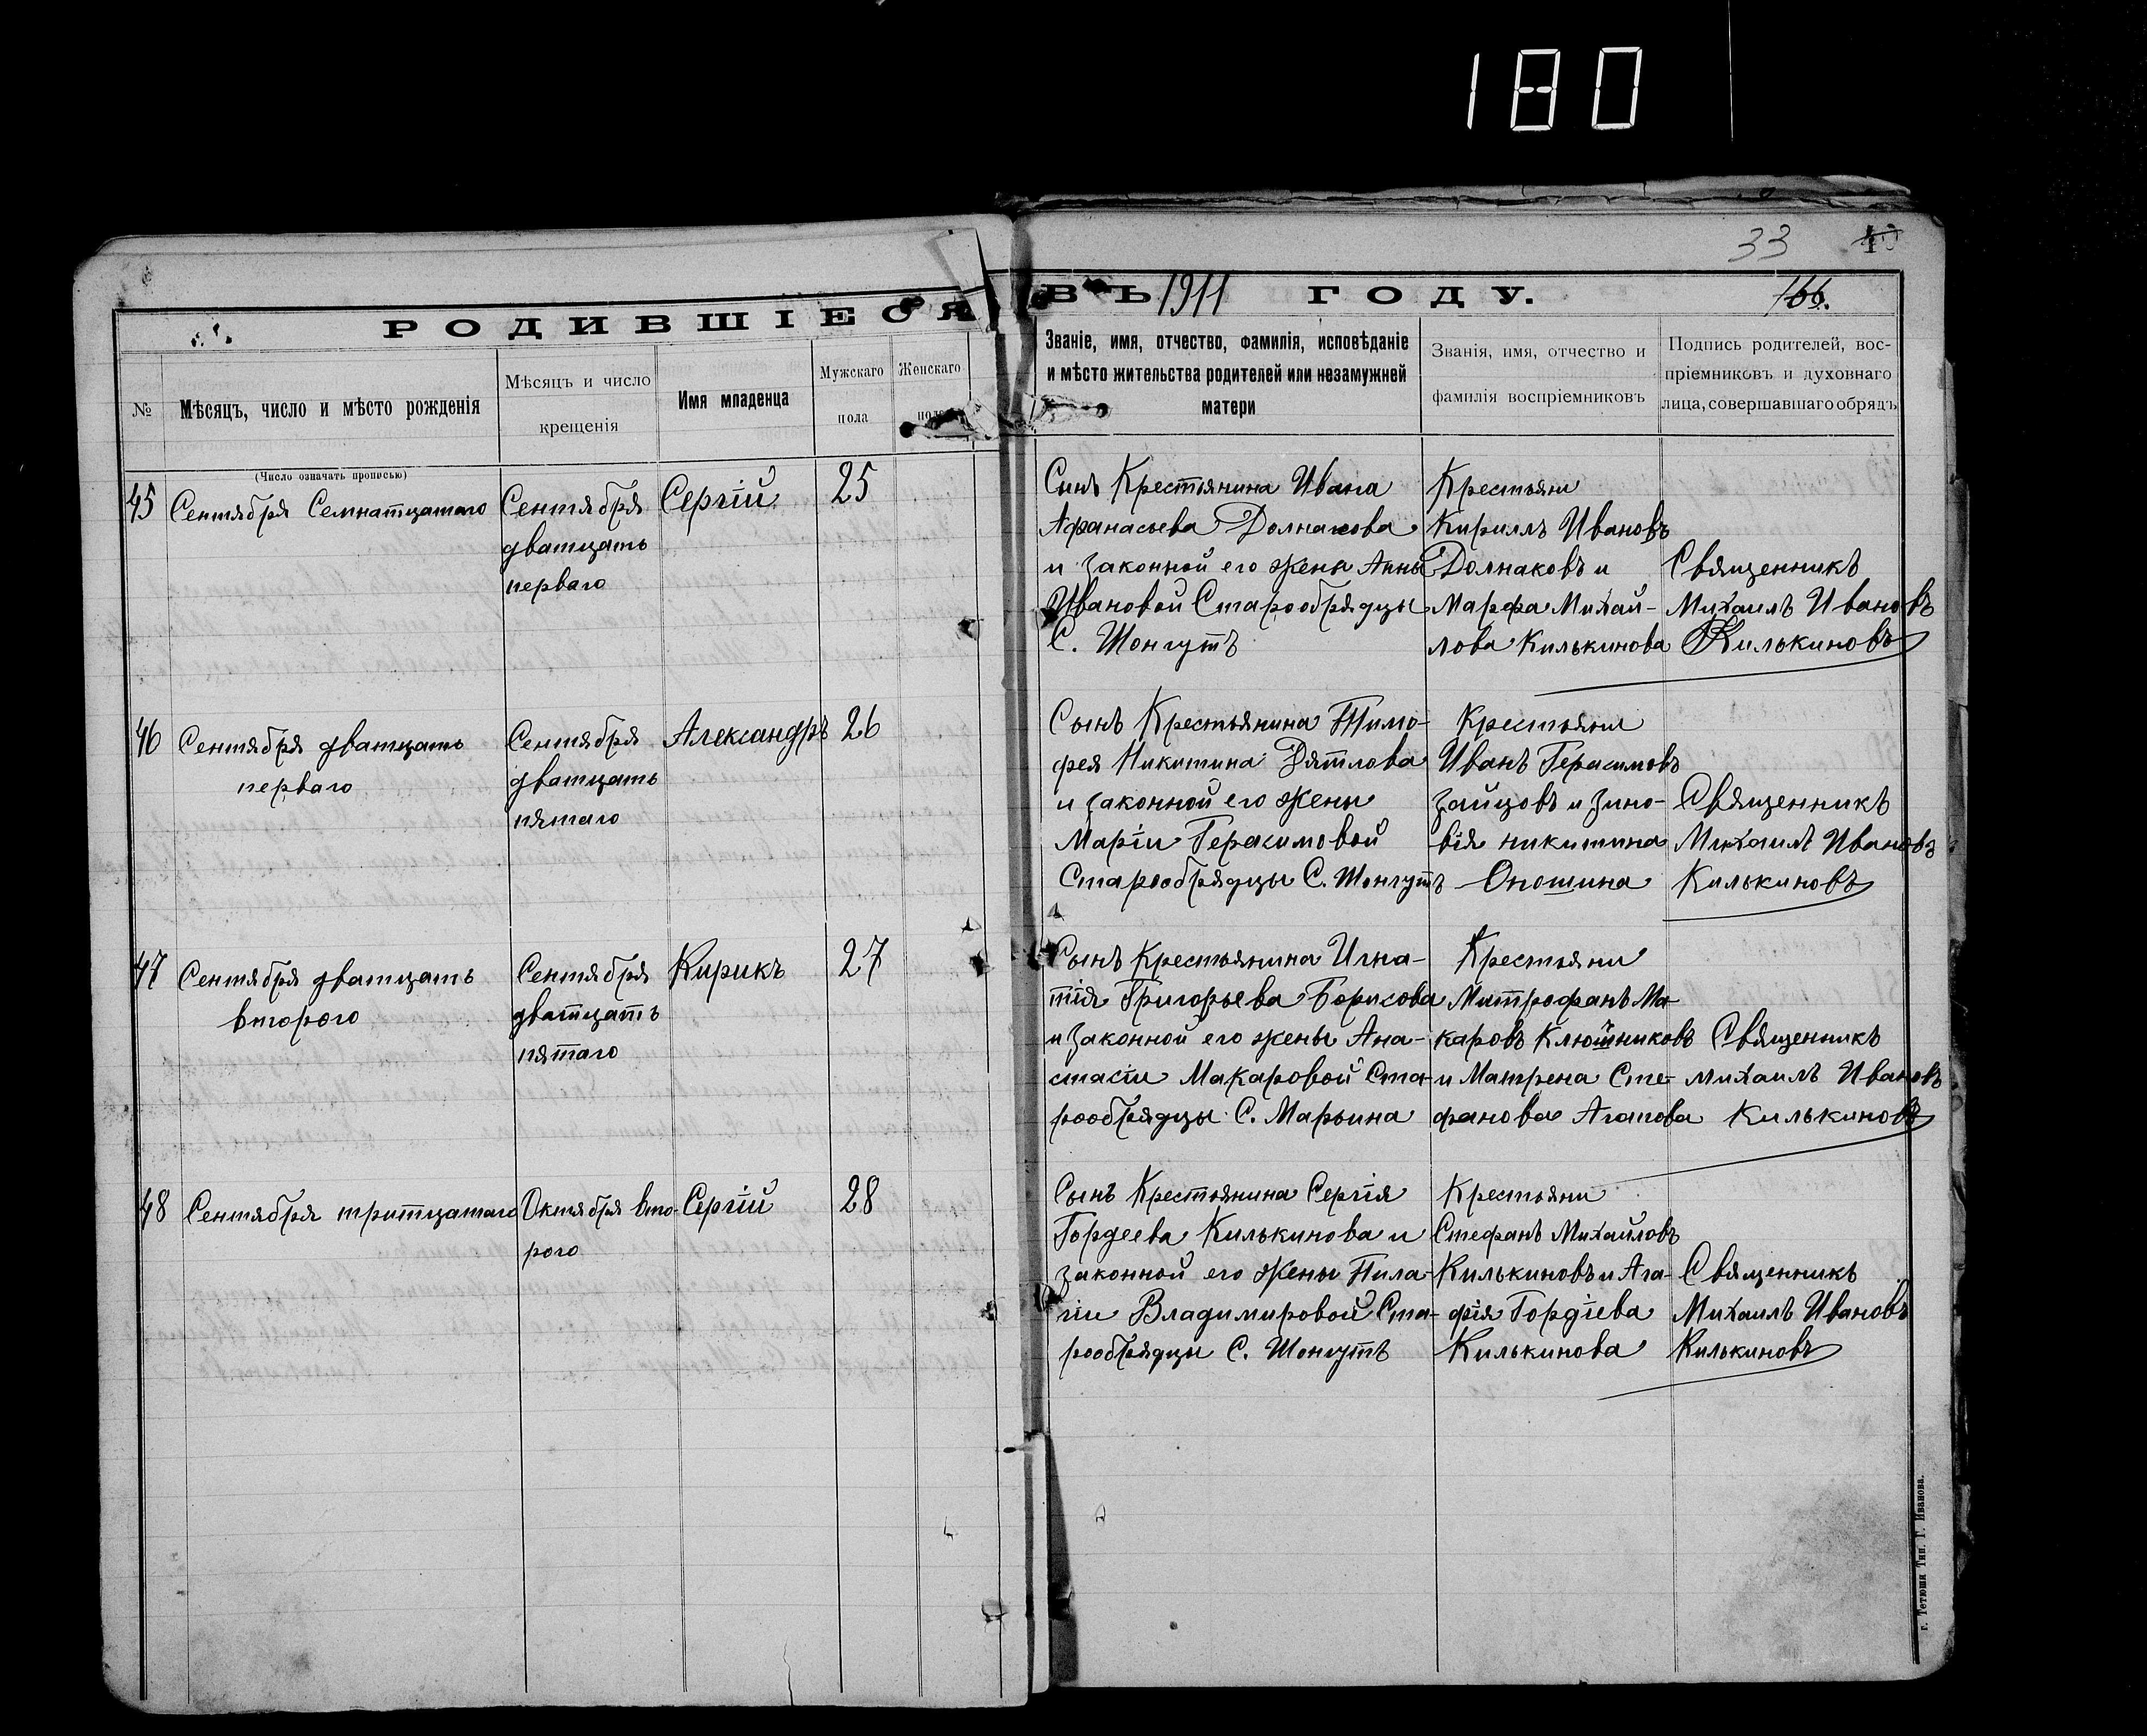 180
33
РОДИВШІЕСЯ ВЪ 1911 ГОДУ.
166.
№
Мѣсяцъ, число и мѣсто рожденія
Мѣсяцъ и число
крещенія
Имя младенца
Мужскаго
пола
Женскаго
Званіе, имя, отчество, фамилія, исповѣданіе
и мѣсто жительства родителей или незамужней
матери
Званія, имя, отчество и
фамилія воспріемниковъ
Подпись родителей, вос-
пріемниковъ и духовнаго
лица, совершавшаго обрядъ
(Число означать прописью)
45
Сентября Семнатцатаго
Сентября
дватцать
перваго
Сергій
25
Сынъ Крестьянина Ивана
Афанасьева Долнакова
и законной его жены Анны
Ивановой Старообрядцы
С. Шонгутъ
Крестьяни
Кириллъ Ивановъ
Долнаковъ и
Марфа Михай-
лова Килькинова
Священникъ
Михаилъ Ивановъ
Килькиновъ
46
Сентября дватцать
перваго
Сентября
дватцать
пятаго
Александръ
26
Сынъ Крестьянина Тимо-
фея Никитина Дятлова
и законной его жены
Маріи Герасимовой
Старообрядцы С. Шонгутъ
Крестьяни
Иванъ Герасимовъ
Зайцовъ и Зино-
вія никитина
Оношина
Священникъ
Михаилъ Ивановъ
Килькиновъ
47
Сентября дватцать
второго
Сентября
дватцатъ
пятаго
Кирикъ
27
Сынъ Крестьянина Игна-
тія Григорьева Борисова
и законной его жены Ана-
стасіи Макаровой Ста-
рообрядцы С. Марьина
Крестьяни
Митрофанъ Ма-
каровъ Клюшниковъ
и Матрена Сте-
фанова Агапова
Священникъ
михаилъ Ивановъ
Килькиновъ
48
Сентября тритцатаго
Октября вто-
рого
Сергій
28
Сынъ Крестьянина Сергія
Гордеева Килькинова и
законной его жены Пила-
гіи Владимировой Ста-
рообрядцы С. Шонгутъ
Крестьяни
Стефанъ Михайловъ
Килькиновъ и Ага-
фія Гордіева
Килькинова
Священникъ
Михаилъ Ивановъ
Килькиновъ
г. Тетюши Тип. Г. Иванова.